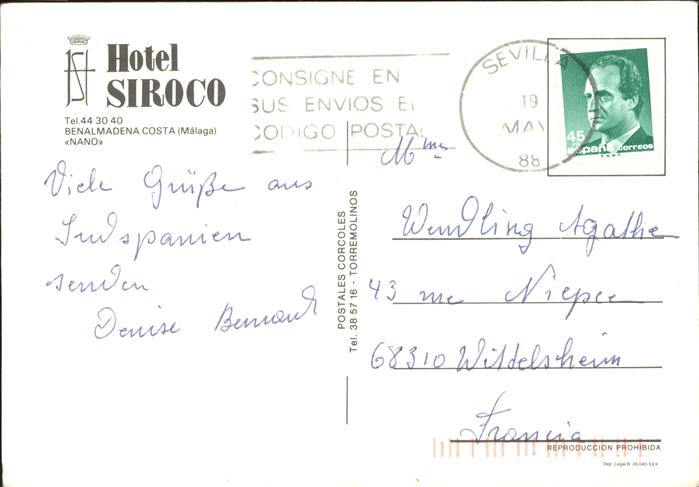 Hotel
SIROCO
Tel. 44 30 40
BENALMADENA COSTA (Málaga)
«NANO»
CONSIGNE EN
SUS ENVIOS EL
CODIGO POSTAL
SEVILLA
19
MAY
88
45
españa correos
Viele Grüße aus
Südspanien
senden
Denise Bernard
POSTALES CORCOLES
Tel. 38 57 16 - TORREMOLINOS
Mme
Wendling Agathe
43 rue Niepce
68310 Wittelsheim
Francia
REPRODUCCION PROHIBIDA
Dep. Legal B 26 040-XXX